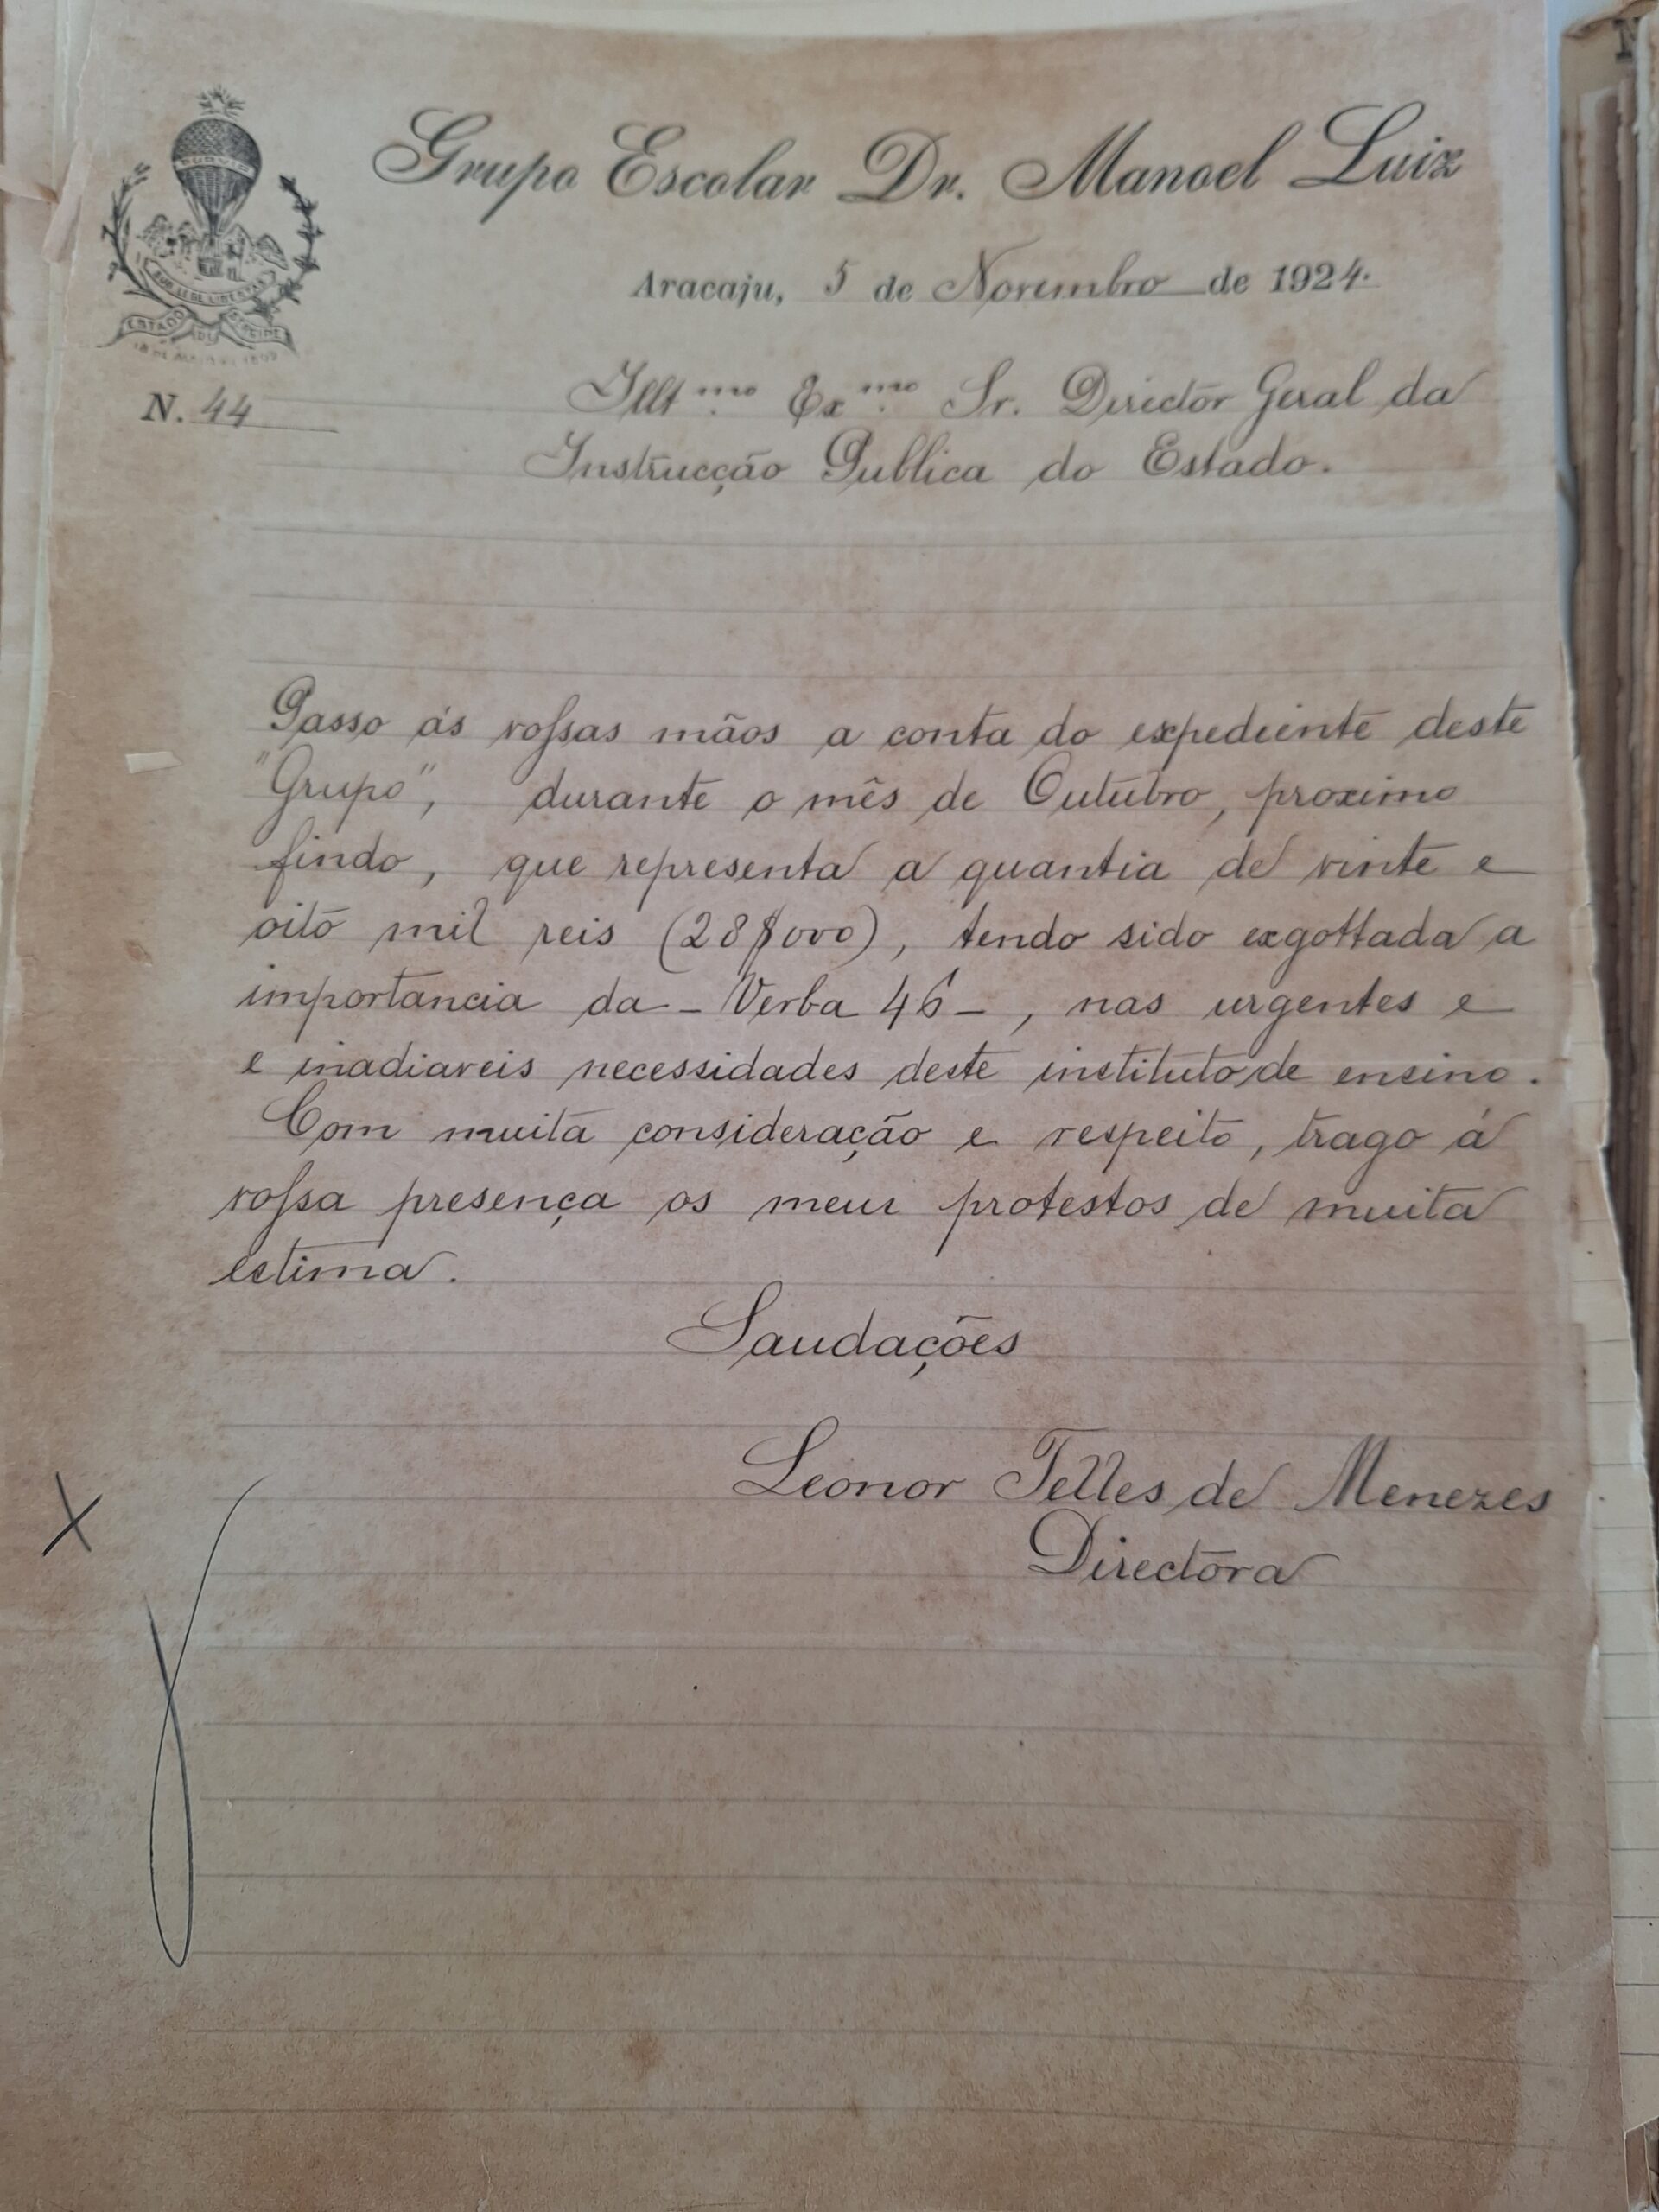 Grupo Escolar Dr. Manoel Luiz
Aracaju, 5 de Novembro de 1924.
PORVIR
SUB LEGE LIBERTAS
ESTADO DE SERGIPE
N. 44
Illt.mo Ex.mo Sr. Director Geral da
Instrucção Publica do Estado.
Passo ás vossas mãos a conta do expediente deste
"Grupo", durante o mês de Outubro, proximo
findo, que representa a quantia de vinte e
oito mil reis (28$000), tendo sido exgottada a
importancia da - Verba 46 -, nas urgentes e
e inadiaveis necessidades deste instituto de ensino.
Com muita consideração e respeito, trago á
vossa presença os meus protestos de muita
estima.
Saudações
Leonor Telles de Menezes
Directora